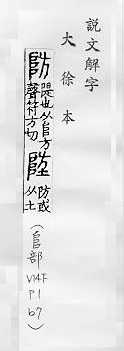 說文解字
大徐本
防 隄也从𨸏方
聲符方切 埅 防或
从土
(𨸏部
V14下
P1
b7)